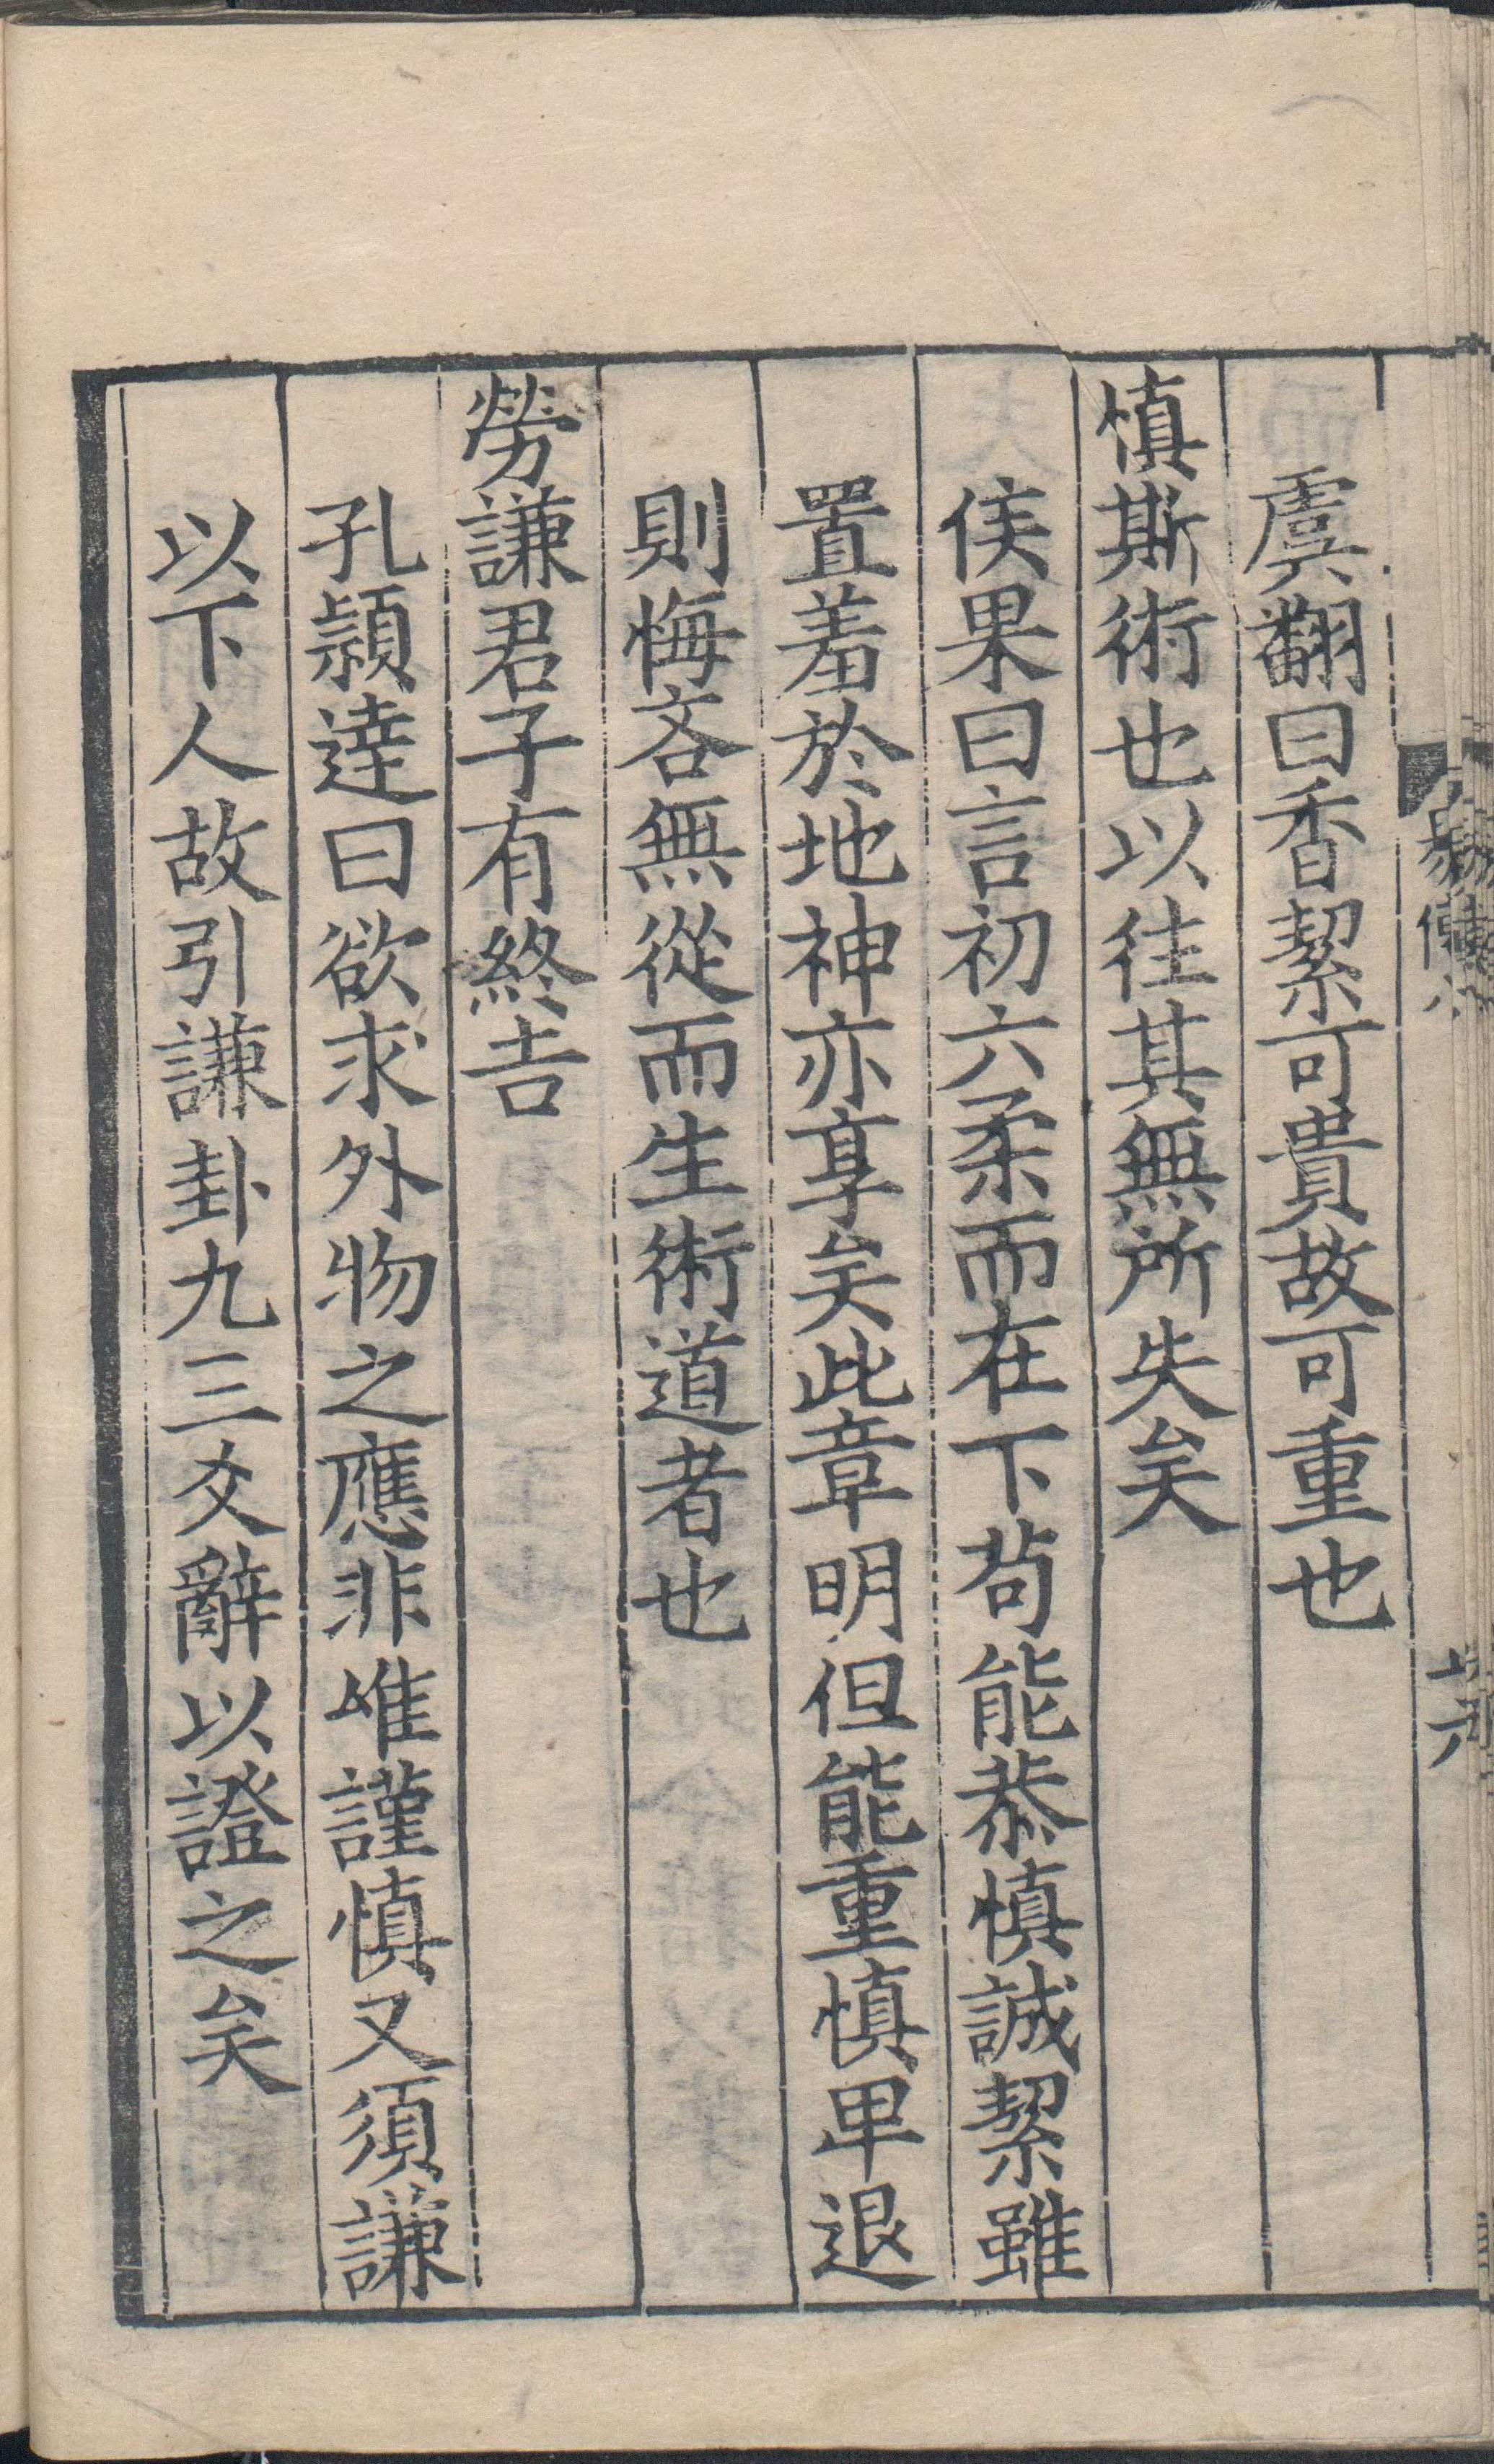 虞翻曰香絜可貴故可重也
慎斯術也以往其無所失矣
侯果曰言初六柔而在下苟能恭慎誠絜雖
置羞於地神亦享矣此章明但能重慎卑退
則悔吝無從而生術道者也
勞謙君子有終吉
孔穎達曰欲求外物之應非唯謹慎又須謙
以下人故引謙卦九三爻辭以證之矣